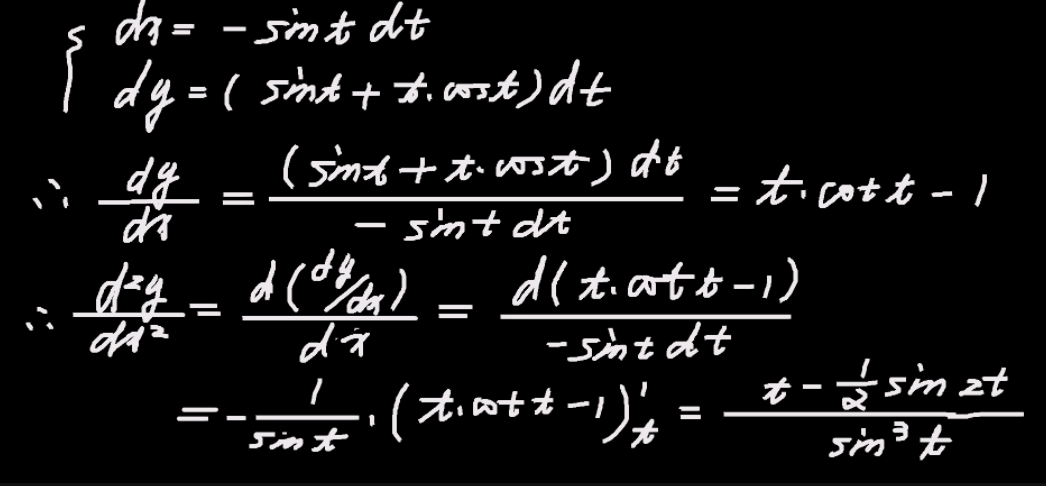 { dx = - sin t dt
dy = ( sin t + t · cos t ) dt
∴ dy/dx = (sin t + t · cos t) dt / - sin t dt = t · cot t - 1
∴ d²y/dx² = d(dy/dx) / dx = d(t · cot t - 1) / - sin t dt
= - 1/sin t · (t · cot t - 1)'ₜ = (t - 1/2 sin 2t) / sin³ t